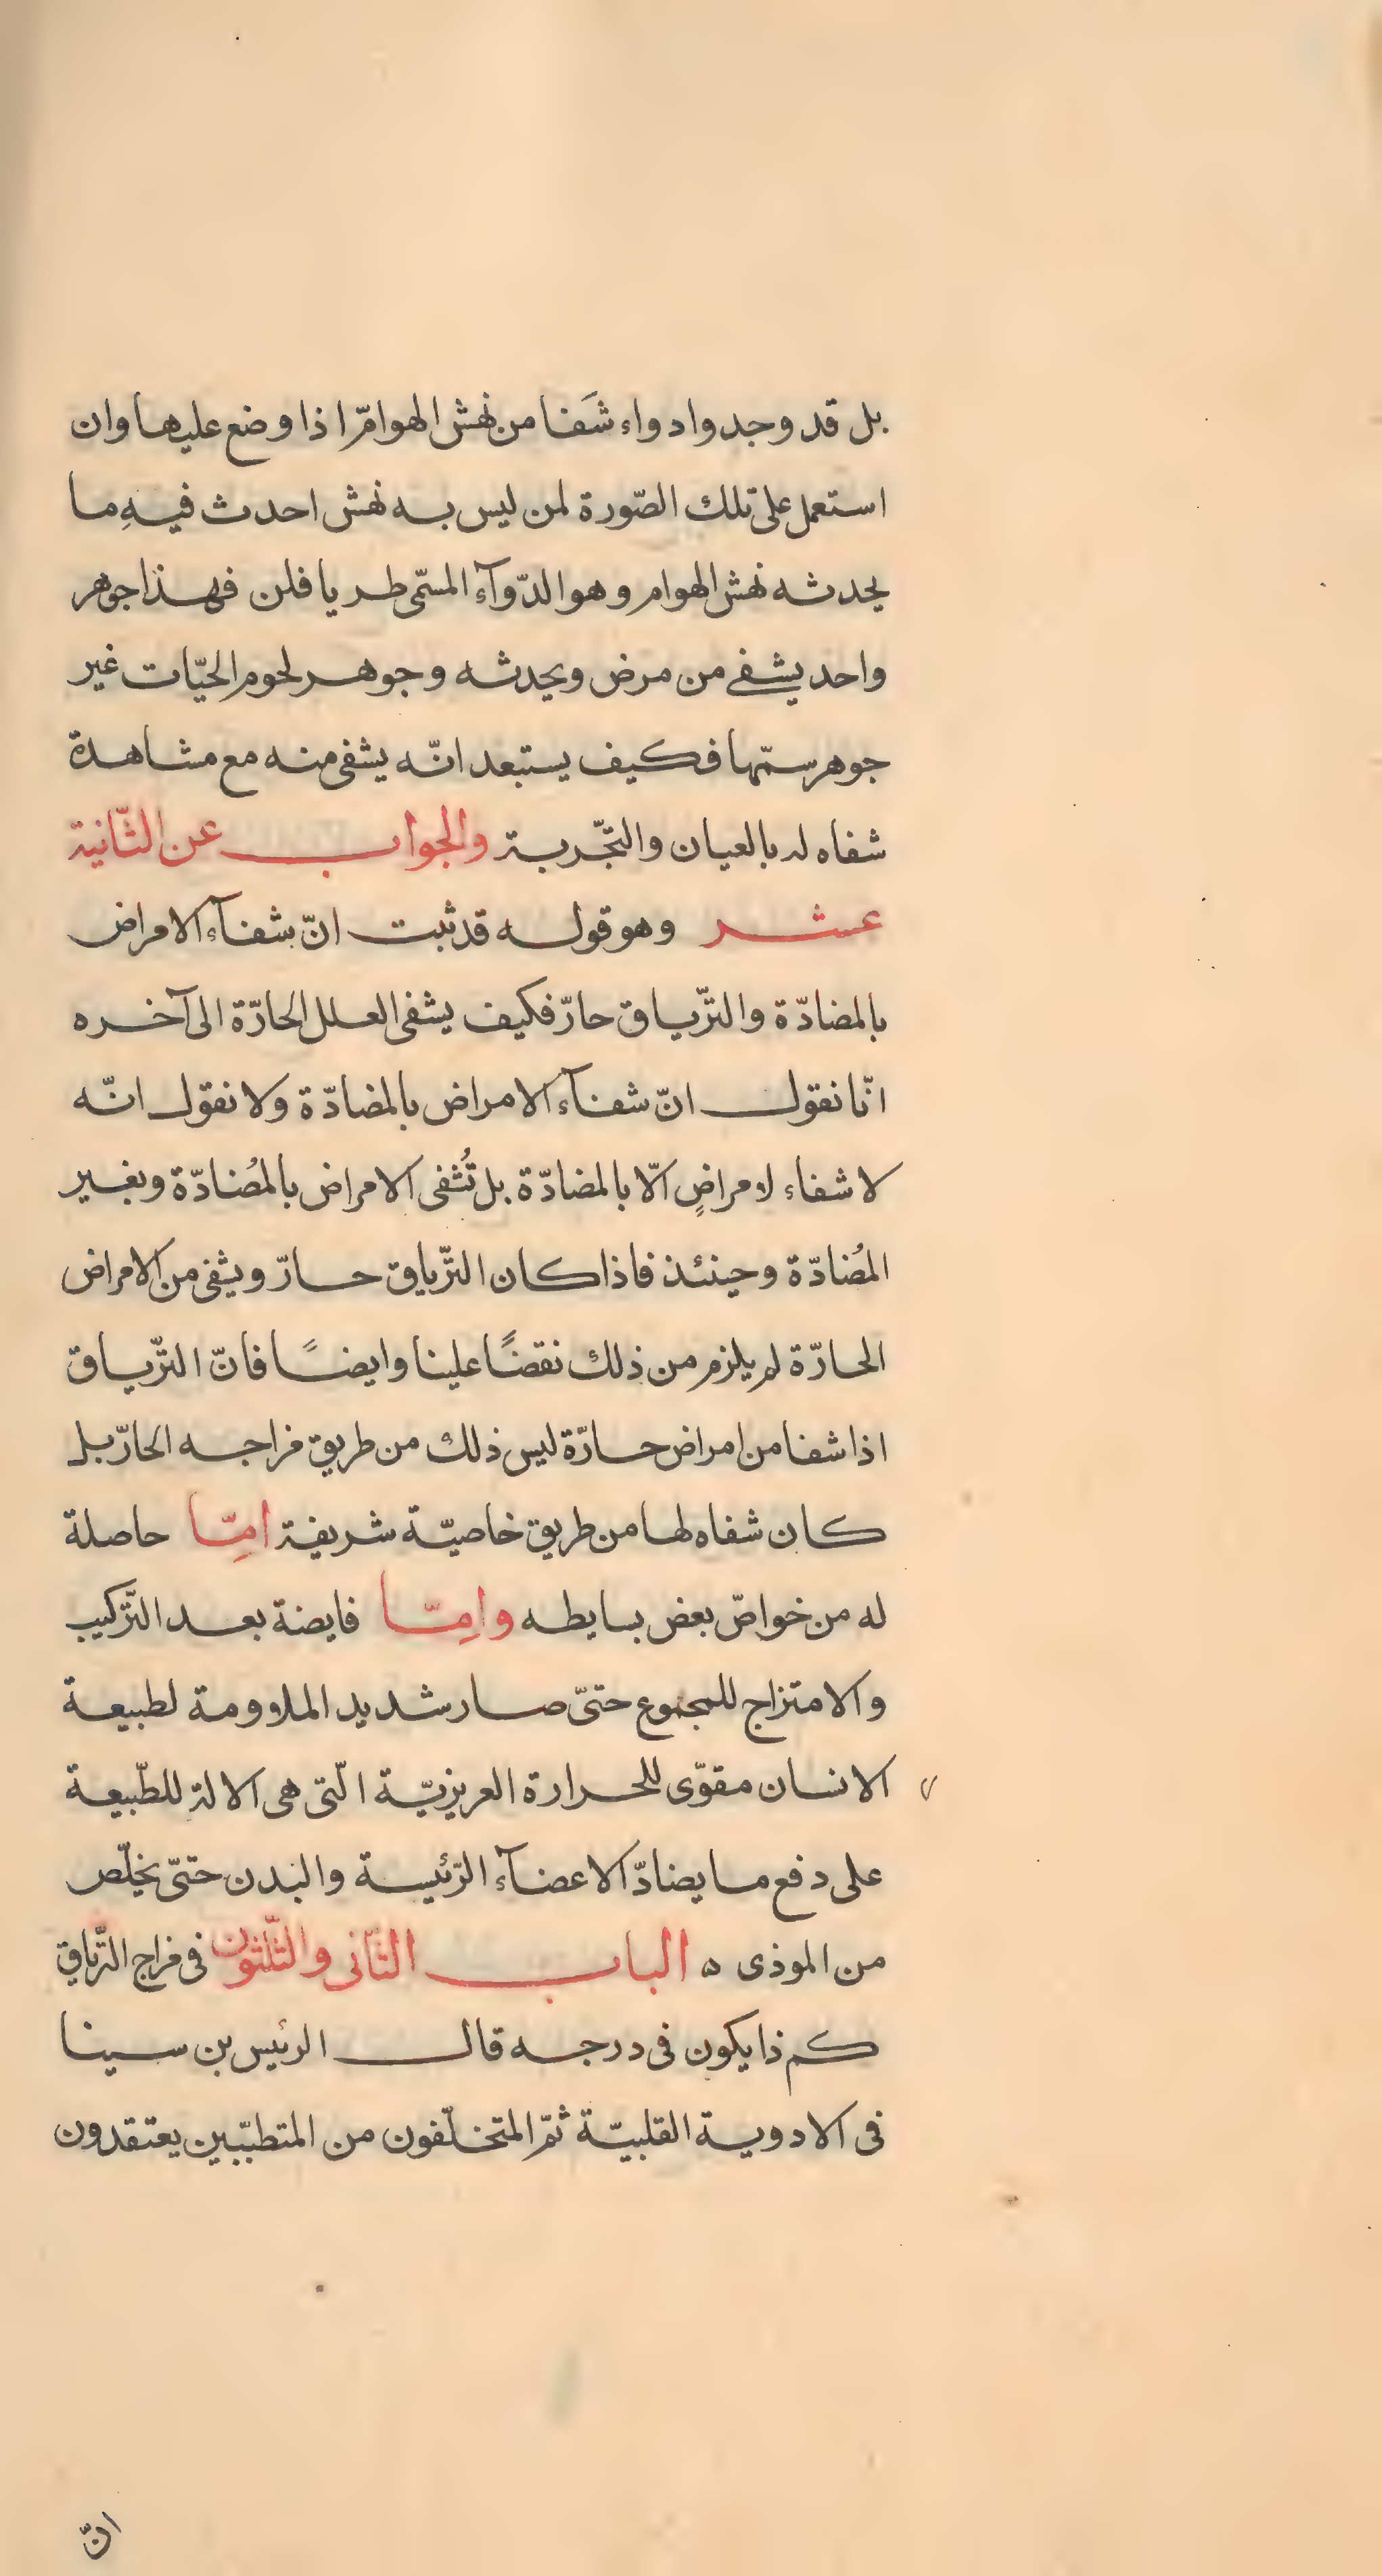 بل قد وجدوا دواء شَفا من نهش الهوامّ اذا وضع عليها وان
استعمل على تلك الصّورة لمن ليس به نهش احدث فيهِ ما
يحدثه نهش الهوام وهو الدّوآء المسمّى طريافلن فهذا جوهر
واحد يشفى من مرض ويحدثه وجوهر لحوم الحيّات غير
جوهر سمّها فكيف يستبعد انّه يشفى منه مع مشاهدة
شفاه له بالعيان والتّجربة والجواب عن الثّانية
عشر وهو قوله قد ثبت انّ شفآء الامراض
بالمضادّة والتّرياق حارّ فكيف يشفى العلل الحارّة الى آخره
انّا نقول انّ شفآء الامراض بالمضادّة ولا نقول انّه
لا شفاء لامراضٍ الّا بالمضادّة بل تُشفى الامراض بالمُضادّة وبغير
المُضادّة وحينئذ فاذا كان التّرياق حارّ ويشفى من الامراض
الحارّة لم يلزم من ذلك نقضًا علينا وايضًا فانّ التّرياق
اذا شفا من امراض حارّة ليس ذلك من طريق مزاجه الحارّ بل
كان شفاه لها من طريق خاصيّة شريفة امِّا حاصلة
له من خواصّ بعض بسايطه وامِّا فايضة بعد التّركيب
والامتزاج للمجموع حتىّ صار شديد الملاومة لطبيعة
الانسان مقوّى للحرارة الغريزيّة الّتى هى الالة للطّبيعة
على دفع ما يضادّ الاعضآء الرّئيسة والبدن حتىّ يخلّص
من الموذى ه الباب الثّانى والثّلثون فى مزاج التّرياق
كم ذا يكون فى درجه قال الرئيس بن سينا
فى الادوية القلبيّة ثمّ المتخلّفون من المتطبّبين يعتقدون
انّ